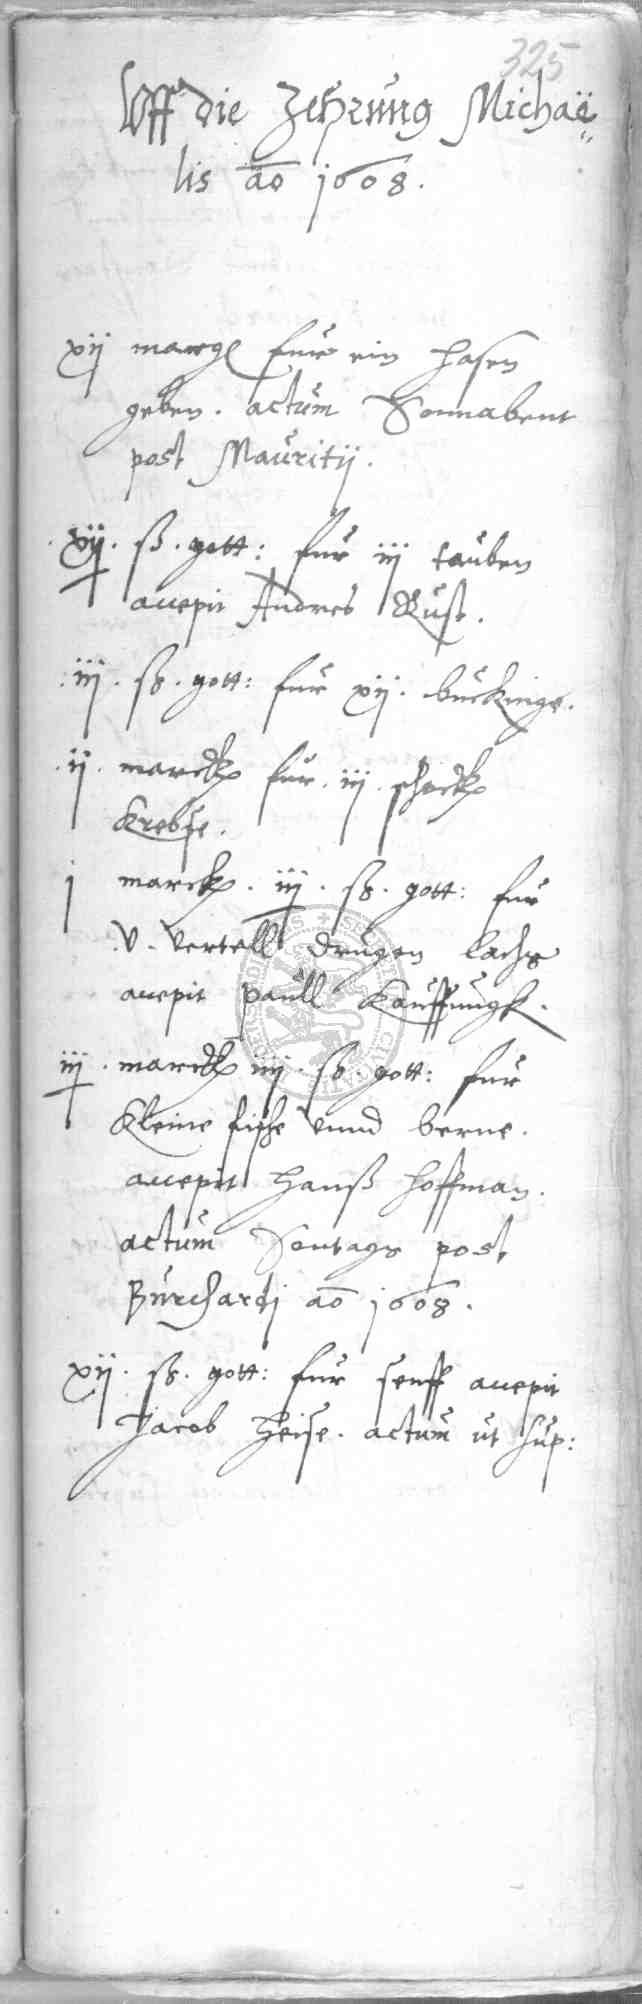 325
Uff die Zehrung Michaë
lis ao 1608.
xij marck fur ein hasen
geben. actum Sonnabent
post Mauritij.
xij. ß. gott: fur iij tauben
accepit Andres Rust.
iij. ß. gott: fur xij. buckinge.
ij. marck fur. iij. schock
Krebse.
j marck. iij. ß. gott: fur
v. vertell drugen lachs
accepit paull Kauffungk.
iij. marck iiij. ß. gott: fur
Kleine fische vnnd berne.
accepit Hanß Hoffman.
actum Sontags post
Burchardj ao 1608.
xij. ß. gott: fur senff accepit
Jacob Heise. actum ut sup: